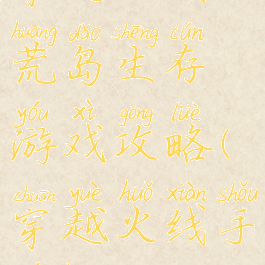 huāng dǎo shēng cún
荒岛生存
yóu xì gōng lüè
游戏攻略(
chuān yuè huǒ xiàn shǒu
穿越火线手